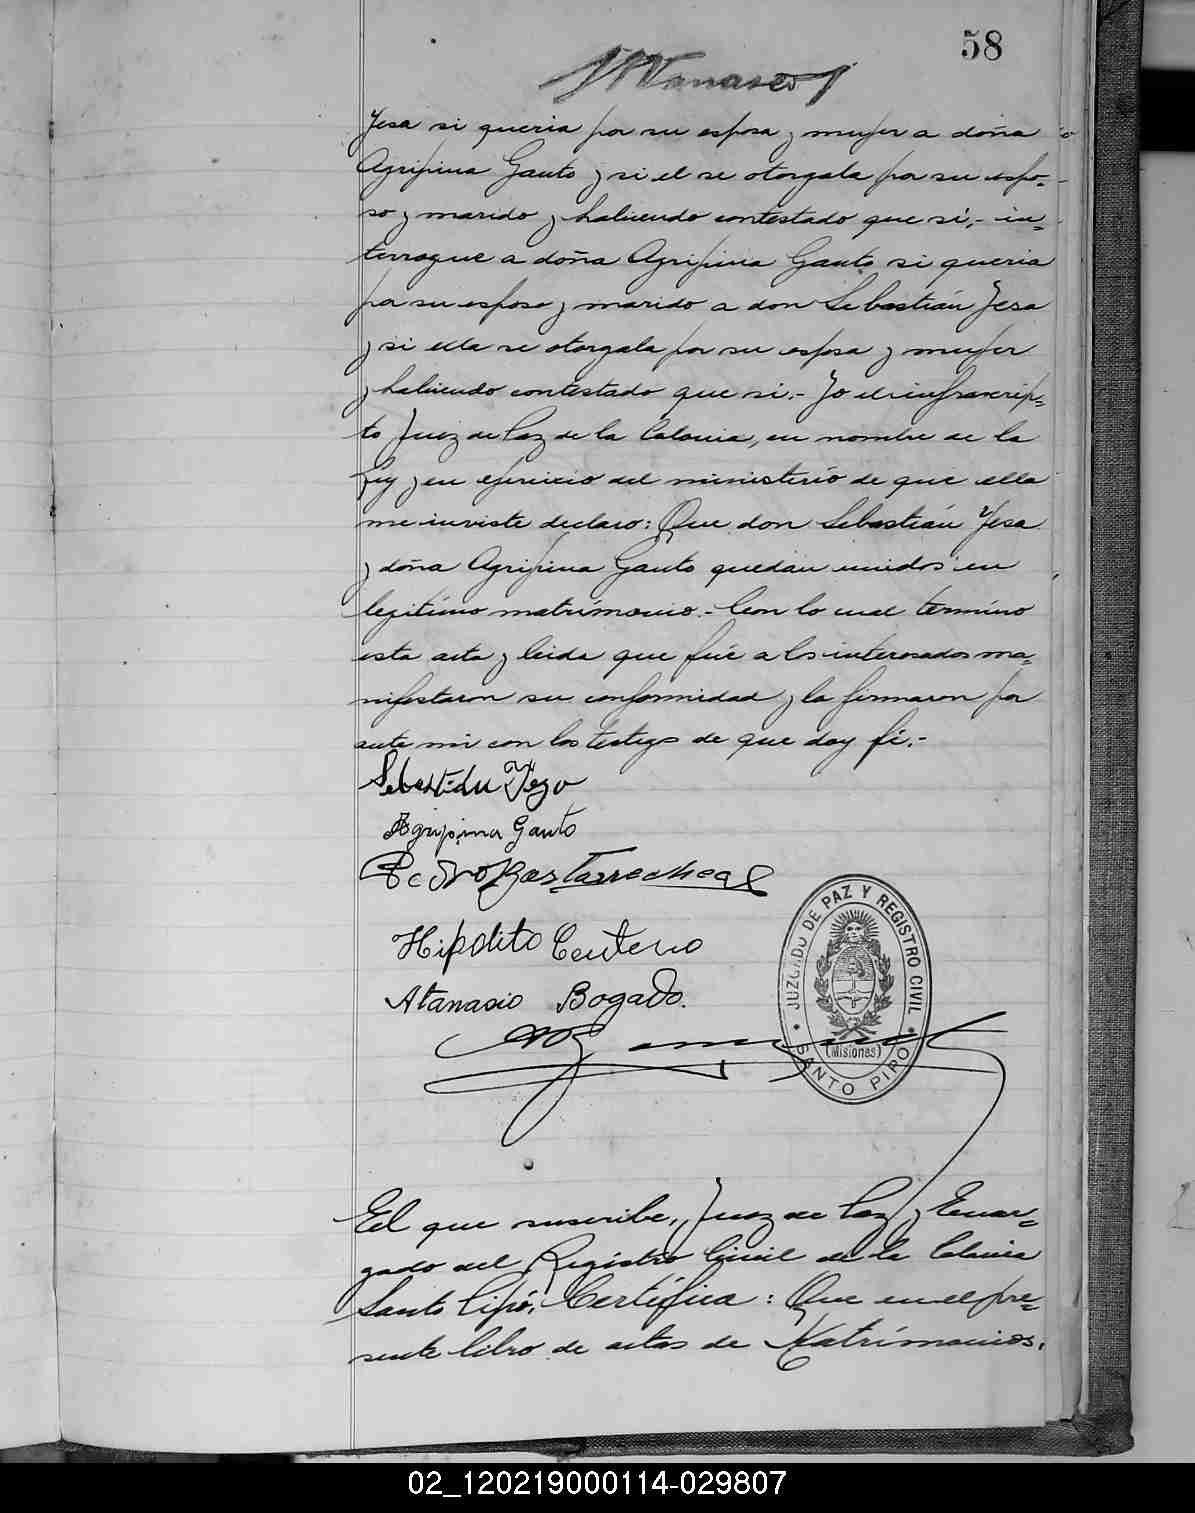 58
Yesa si queria por su esposa y mujer a doña
Agripina Gauto y si el se otorgaba por su espo-
so y marido y habiendo contestado que si,- in-
terrogue a doña Agripina Gauto si queria
por su esposo y marido a don Sebastián Yesa
y si ella se otorgaba por su esposa y mujer
y habiendo contestado que si.- Yo el infrascrip-
to Juez de Paz de la Colonia, en nombre de la
Ley y en ejercicio del ministerio de que ella
me inviste declaro: Que don Sebastián Yesa
y doña Agripina Gauto quedan unidos en
legitimo matrimonio.- Con lo cual termino
esta acta y leida que fué a los interesados ma-
nifestaron su conformidad y la firmaron por
ante mi con los testigos de que doy fé.-
Sebastián
Agripina Gauto
Pedro
Hipolito Centeno
Atanacio Bogado.
JUZGADO DE PAZ Y REGISTRO CIVIL
(Misiones)
SANTO PIPO
El que suscribe, Juez de Paz y Encar-
gado del Registro Civil de la Colonia
Santo Pipó, Certifica: Que en el pre-
sente libro de actas de Matrimonios,
02_120219000114-029807